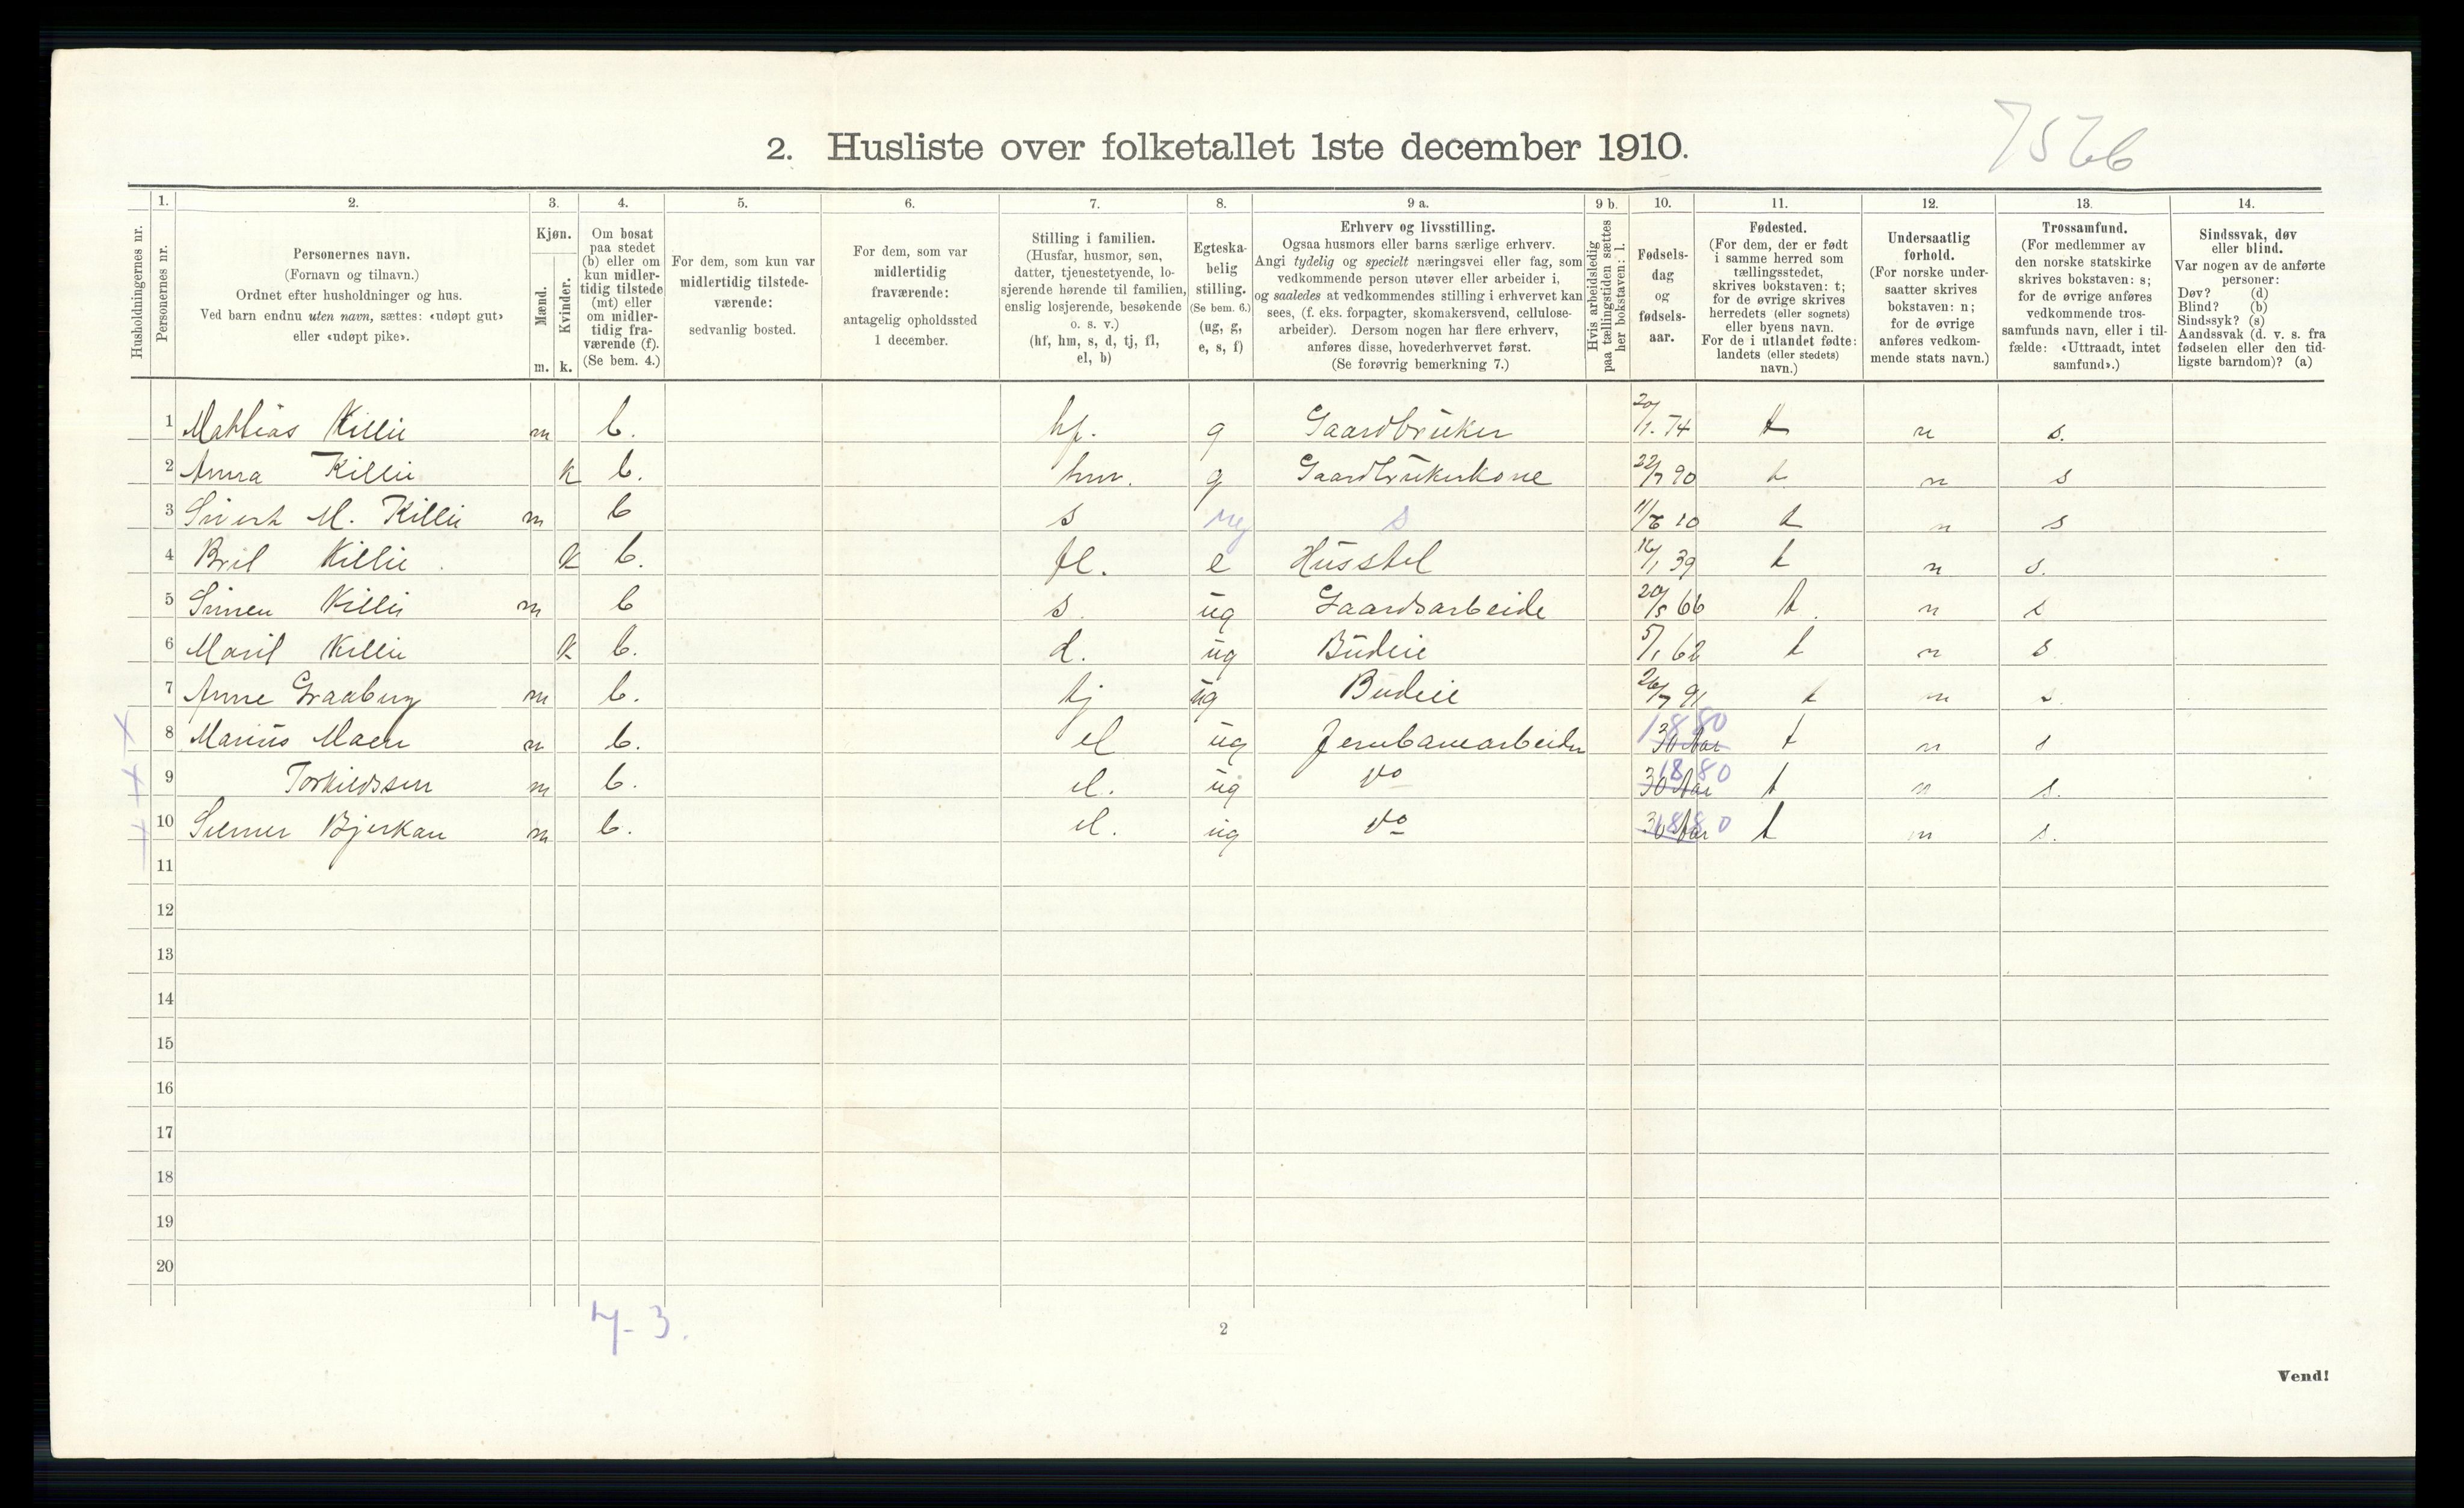 2. Husliste over folketallet 1ste december 1910.
7566
Husholdningernes nr.
1. Personernes nr.
2. Personernes navn.
(Fornavn og tilnavn.)
Ordnet efter husholdninger og hus.
Ved barn endnu uten navn, sættes: «udøpt gut»
eller «udøpt pike».
3. Kjøn.
Mænd. m.
Kvinder. k.
4. Om bosat
paa stedet
(b) eller om
kun midler-
tidig tilstede
(mt) eller
om midler-
tidig fra-
værende (f).
(Se bem. 4.)
5. For dem, som kun var
midlertidig tilstede-
værende:
sedvanlig bosted.
6. For dem, som var
midlertidig
fraværende:
antagelig opholdssted
1 december.
7. Stilling i familien.
(Husfar, husmor, søn,
datter, tjenestetyende, lo-
sjerende hørende til familien,
enslig losjerende, besøkende
o. s. v.)
(hf, hm, s, d, tj, fl,
el, b)
8. Egteska-
belig
stilling.
(Se bem. 6.)
(ug, g,
e, s, f)
9 a. Erhverv og livsstilling.
Ogsaa husmors eller barns særlige erhverv.
Angi tydelig og specielt næringsvei eller fag, som
vedkommende person utøver eller arbeider i,
og saaledes at vedkommendes stilling i erhvervet kan
sees, (f. eks. forpagter, skomakersvend, cellulose-
arbeider). Dersom nogen har flere erhverv,
anføres disse, hovederhvervet først.
(Se forøvrig bemerkning 7.)
9 b. Hvis arbeidsledig
paa tællingstiden sættes
her bokstaven: l.
10. Fødsels-
dag
og
fødsels-
aar.
11. Fødested.
(For dem, der er født
i samme herred som
tællingsstedet,
skrives bokstaven: t;
for de øvrige skrives
herredets (eller sognets)
eller byens navn.
For de i utlandet fødte:
landets (eller stedets)
navn.)
12. Undersaatlig
forhold.
(For norske under-
saatter skrives
bokstaven: n;
for de øvrige
anføres vedkom-
mende stats navn.)
13. Trossamfund.
(For medlemmer av
den norske statskirke
skrives bokstaven: s;
for de øvrige anføres
vedkommende tros-
samfunds navn, eller i til-
fælde: «Uttraadt, intet
samfund».)
14. Sindssvak, døv
eller blind.
Var nogen av de anførte
personer:
Døv? (d)
Blind? (b)
Sindssyk? (s)
Aandssvak (d. v. s. fra
fødselen eller den tid-
ligste barndom)? (a)
1 Mathias Killie m b. hf. g Gaardbruker 20/1. 74 t n s.
2 Anna Killie k b. hm. g Gaardbrukerkone 22/7 90 t n s
3 Sivert M. Killie m b s ug s 11/6 10 t n s
4 Bril Killie k b. fl. e Husstel 16/1 39 t n s.
5 Simen Killie m b s. ug Gaardsarbeide 20/5 66 t. n s
6 Maril Killie k b. d. ug Budeie 5/1 62 t n s
7 Anne Graaberg m b. tj ug Budeie 26/7 91 t n s.
X 8 Marius Maere m b. el ug Jernbanearbeider 30 Aar 1880 t n s
X 9 Torkildssen m b. el. ug do 30 Aar 1880 t n s.
X 10 Bjerkan m b. el. ug do 30 Aar 1880 t n s.
11
12
13
14
15
16
17
18
19
20
7-3.
2
Vend!